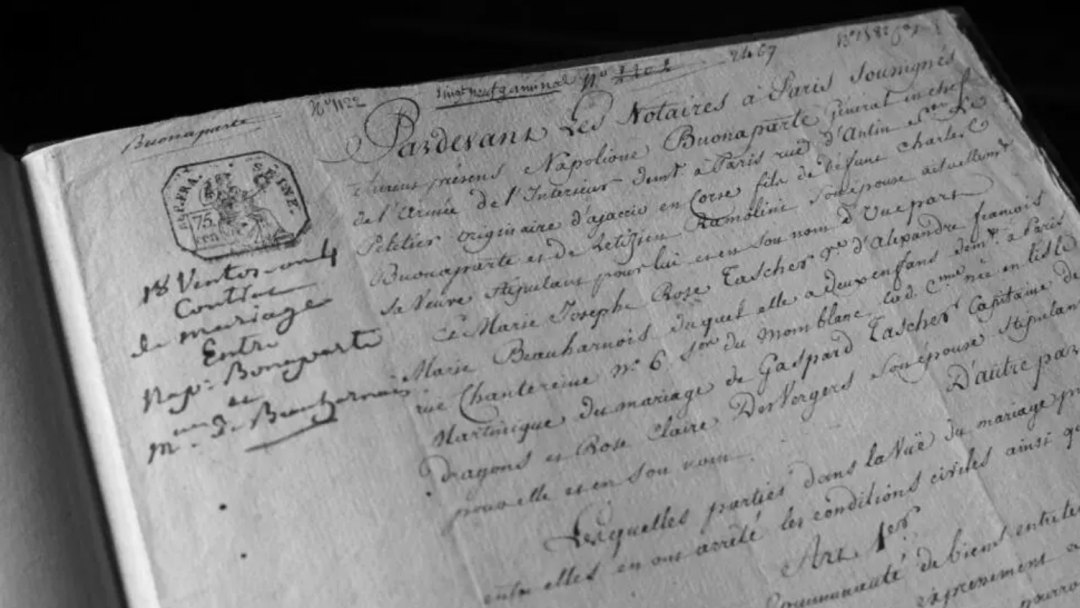 Buonaparte
N° 1122
vingt neuf germinal
2467
REP. FRA.
SEINE.
75
cen
18 Ventose an 4
Contrat
de mariage
Entre
Nap. Bonaparte
et
M. de Beauharnais
Pardevant Les Notaires à Paris soussignés
furent présens Napolione Buonaparte général en chef
de l'Armée de l'Interieur demt à Paris rue d'Antin Son Le
Peletier originaire d'ajaccio en Corse fils de défunt Charles
Buonaparte et de Letizia Ramolini son épouse actuellemt
sa Veuve stipulant pour lui et en son nom d'Une part
Et Marie Josephe Rose Tascher Ve d'Alexandre françois
Marie Beauharnois duquel elle a deux enfans demt à Paris
rue Chantereine n° 6 Son du Montblanc lad. Cne née en l'isle
Martinique du mariage de Gaspard Tascher Capitaine de
Dragons et Rose Claire DesVergers son épouse stipulant
pour elle et en son nom
D'autre part
Lesquelles parties dans la Vuë du mariage
entre elles en ont arrêté les conditions civiles ainsi
Art. 1er
Communauté de biens entre les
expressement